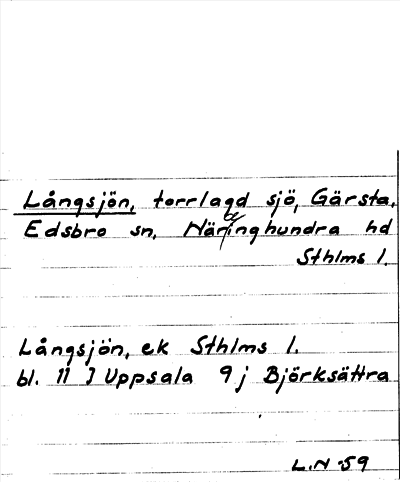 Långsjön, torrlagd sjö, Gärsta,
Edsbro sn, Närdinghundra hd
Sthlms l.
Långsjön, ek Sthlms l.
bl. 11 J Uppsala 9 j Björksättra
L.N -59